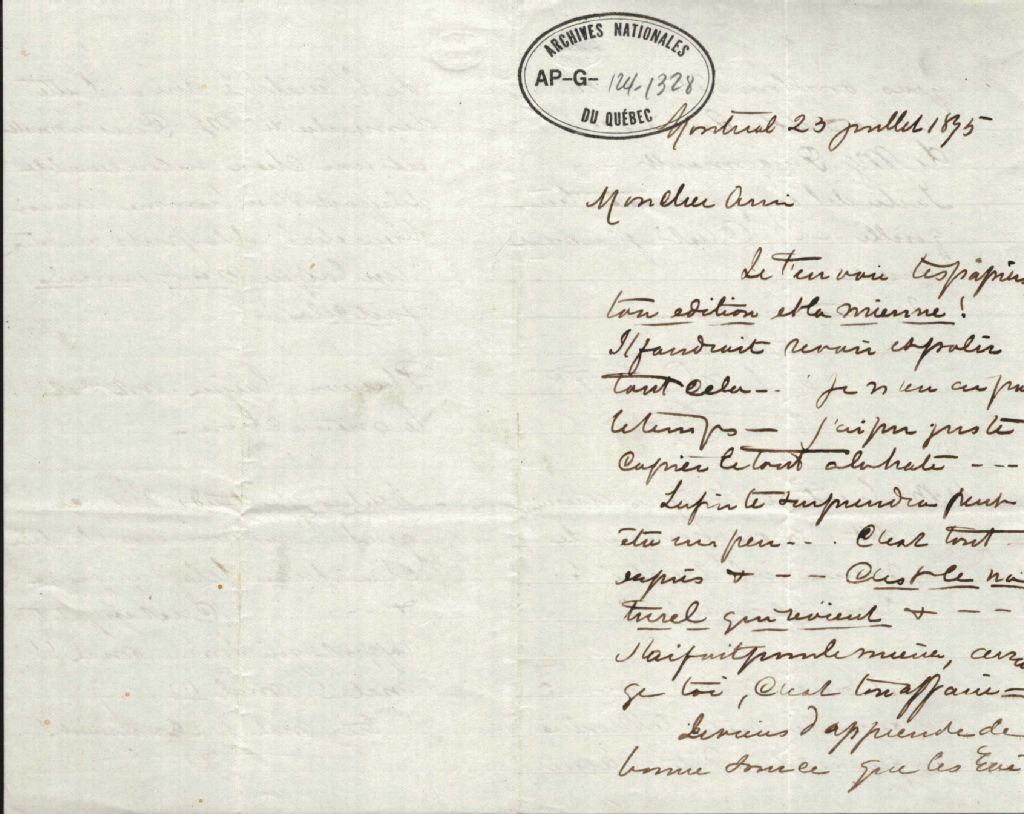 ARCHIVES NATIONALES
AP-G- 124-1328
DU QUÉBEC
Montreal 23 juillet 1895
Mon cher Ami
Je t'envoie tes papiers
ton edition et la mienne !
Il faudrait revoir et polir
tout cela -. Je n'en ai pas
le temps — j'ai pu juste
Copier le tout a la hate - - -
La fin te surprendra peut
être un peu - - . C'est tout
exprès & - - C'est le na
turel qui revient & - -
J'ai fait pour le mieux, arran
ge toi, C'est ton affaire =
Je viens d'apprendre de
bonne source que les Evê